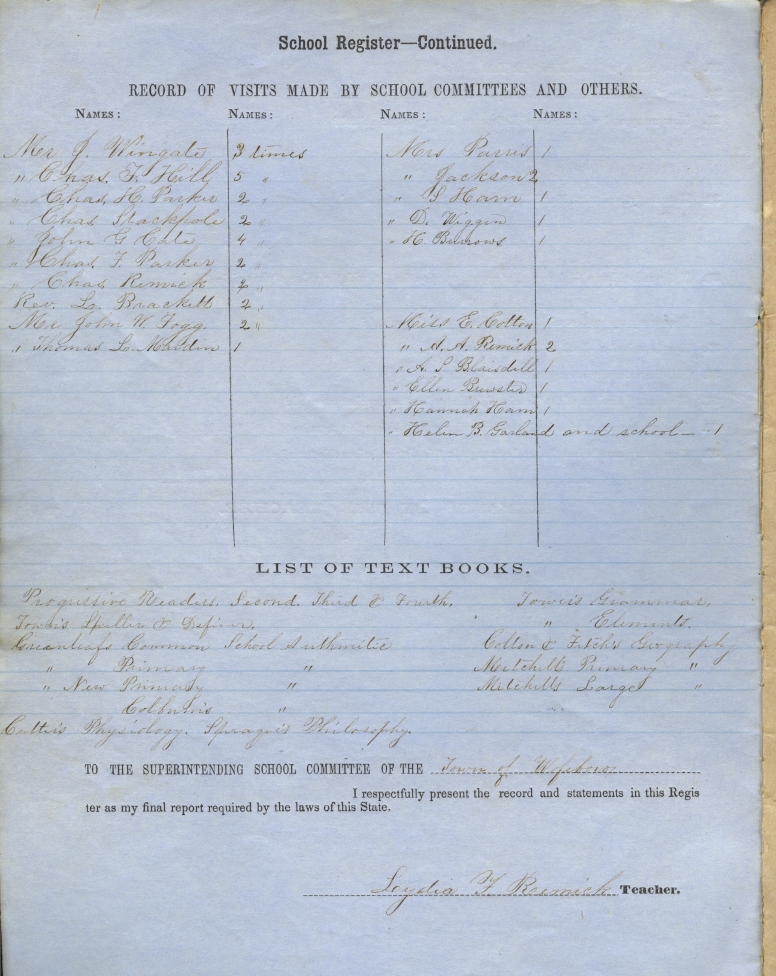 School Register—Continued.
RECORD OF VISITS MADE BY SCHOOL COMMITTEES AND OTHERS.
NAMES: NAMES: NAMES: NAMES:
Mr J. Wingate 3 times
" Chas. F. Hill 5 "
" Chas. H. Parker 2 "
" Chas Stackpole 2 "
" John G Cate 4 "
" Chas F. Parker 2 "
" Chas Remick "
Rev. L. Brackett 2 "
Mr John W. Fogg 2 "
" Thomas L. 1
Mrs Parris 1
" Jackson 2
" S Ham 1
" D. Wiggin 1
" H. Burrows 1
Miss E. Cotton 1
" A. A. Remick 2
" A. S Blaisdell 1
" Ellen Brewster 1
" Hannah Ham 1
" Helen B. Garland and school — 1
LIST OF TEXT BOOKS.
Progressive Readers, Second. Third & Fourth. Tower's Grammar.
Tower's Speller & Definer. " Elements.
Greenleafs Common School Arithmetic Colton & Fitch's Geography
" Primary " Mitchell Primary "
" New Primary " Mitchells Large "
Colburn's "
Cutter's Physiology. Sprague's Philosophy.
TO THE SUPERINTENDING SCHOOL COMMITTEE OF THE Town of Wolfboro
I respectfully present the record and statements in this Regis
ter as my final report required by the laws of this State.
Lydia F Remick Teacher.